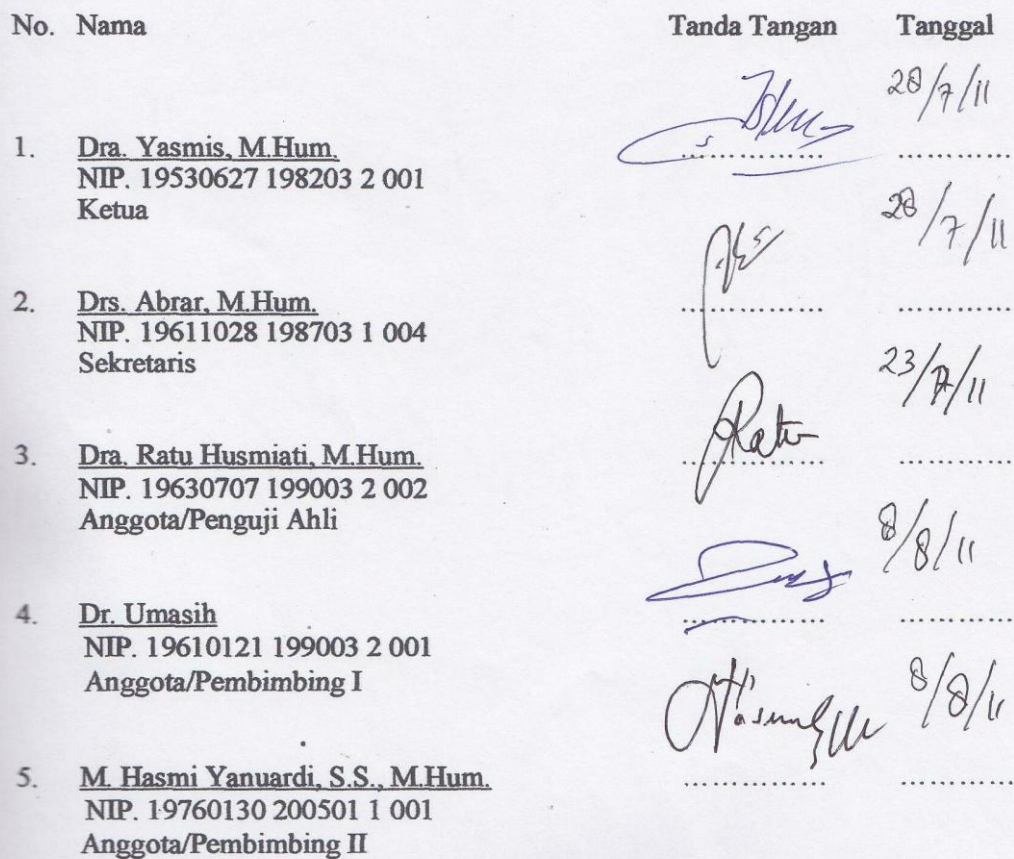 No. Nama Tanda Tangan Tanggal
28/7/11
1. Dra. Yasmis, M.Hum. ................ ............
NIP. 19530627 198203 2 001
Ketua
28/7/11
2. Drs. Abrar, M.Hum. ................ ............
NIP. 19611028 198703 1 004
Sekretaris
23/7/11
3. Dra. Ratu Husmiati, M.Hum. Ratu ................ ............
NIP. 19630707 199003 2 002
Anggota/Penguji Ahli
8/8/11
4. Dr. Umasih ................ ............
NIP. 19610121 199003 2 001
Anggota/Pembimbing I
8/8/11
5. M. Hasmi Yanuardi, S.S., M.Hum. ................ ............
NIP. 19760130 200501 1 001
Anggota/Pembimbing II